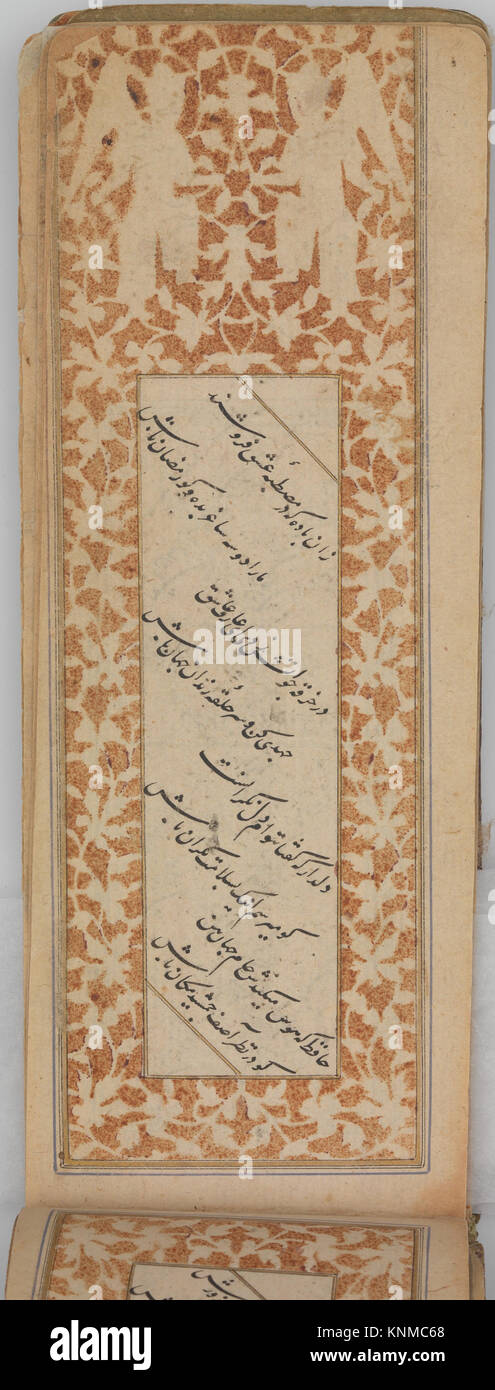 زان باده که در مصطبهٔ عشق فروشند
ما را دو سه ساغر بده و کو رمضان باش
در خرقه چو آتش زدی ای عارف عاشق
جهدی کن و سر حلقه رندان جهان باش
دلدار که گفتا بتوام دل نکرانست
کو میرسم اینک بسلامت نکران باش
حافظ که هوس میکندش جام جهان بین
کو در نظر آصف جمشید مکان باش
alamy
Image ID: KNMC68
www.alamy.com